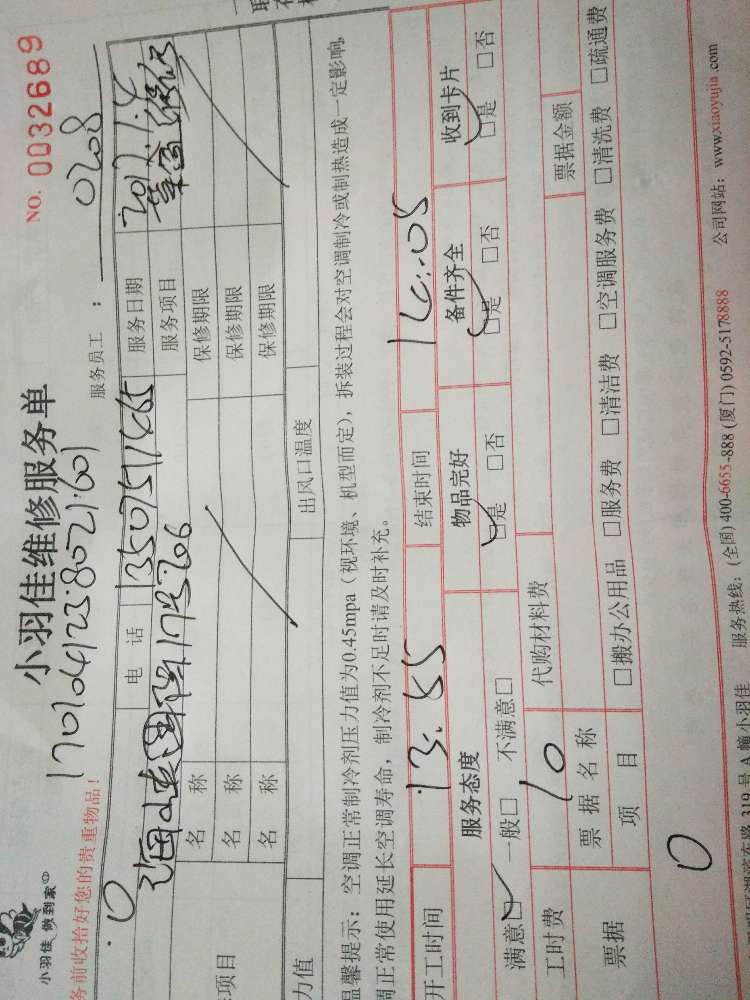 NO. 0032689
小羽佳 做到家
小羽佳维修服务单
务前收拾好您的贵重物品!
服务员工：
0208
电 话
服务日期
服务项目
名 称
保修期限
名 称
保修期限
名 称
保修期限
项目
力值
出风口温度
温馨提示：空调正常制冷剂压力值为0.45mpa（视环境、机型而定），拆装过程会对空调制冷或制热造成一定影响，
调正常使用延长空调寿命，制冷剂不足时请及时补充。
开工时间
13:55
结束时间
服务态度
物品完好
备件齐全
收到卡片
满意□ 一般□ 不满意□
□是 □否
□是 □否
□是 □否
工时费
10
代购材料费
票据
票据名称
票据金额
项 目
□搬办公用品 □服务费 □清洁费 □空调服务费 □清洗费 □疏通费
0
319号A幢小羽佳
服务热线：(全国) 400-6655-888 (厦门) 0592-5178888
公司网站：www.xiaoyujia.com